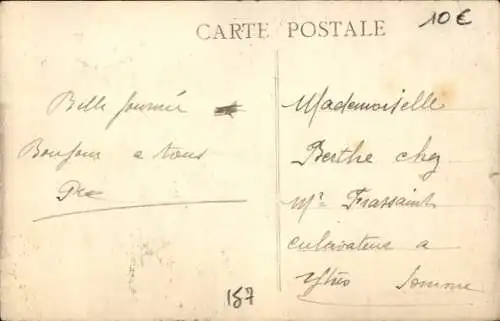 CARTE POSTALE
10€
Belle journée
Bonjour a tous
Mademoiselle
Berthe chez
Mr Frassaint
cultivateur a
Ytres Somme
157